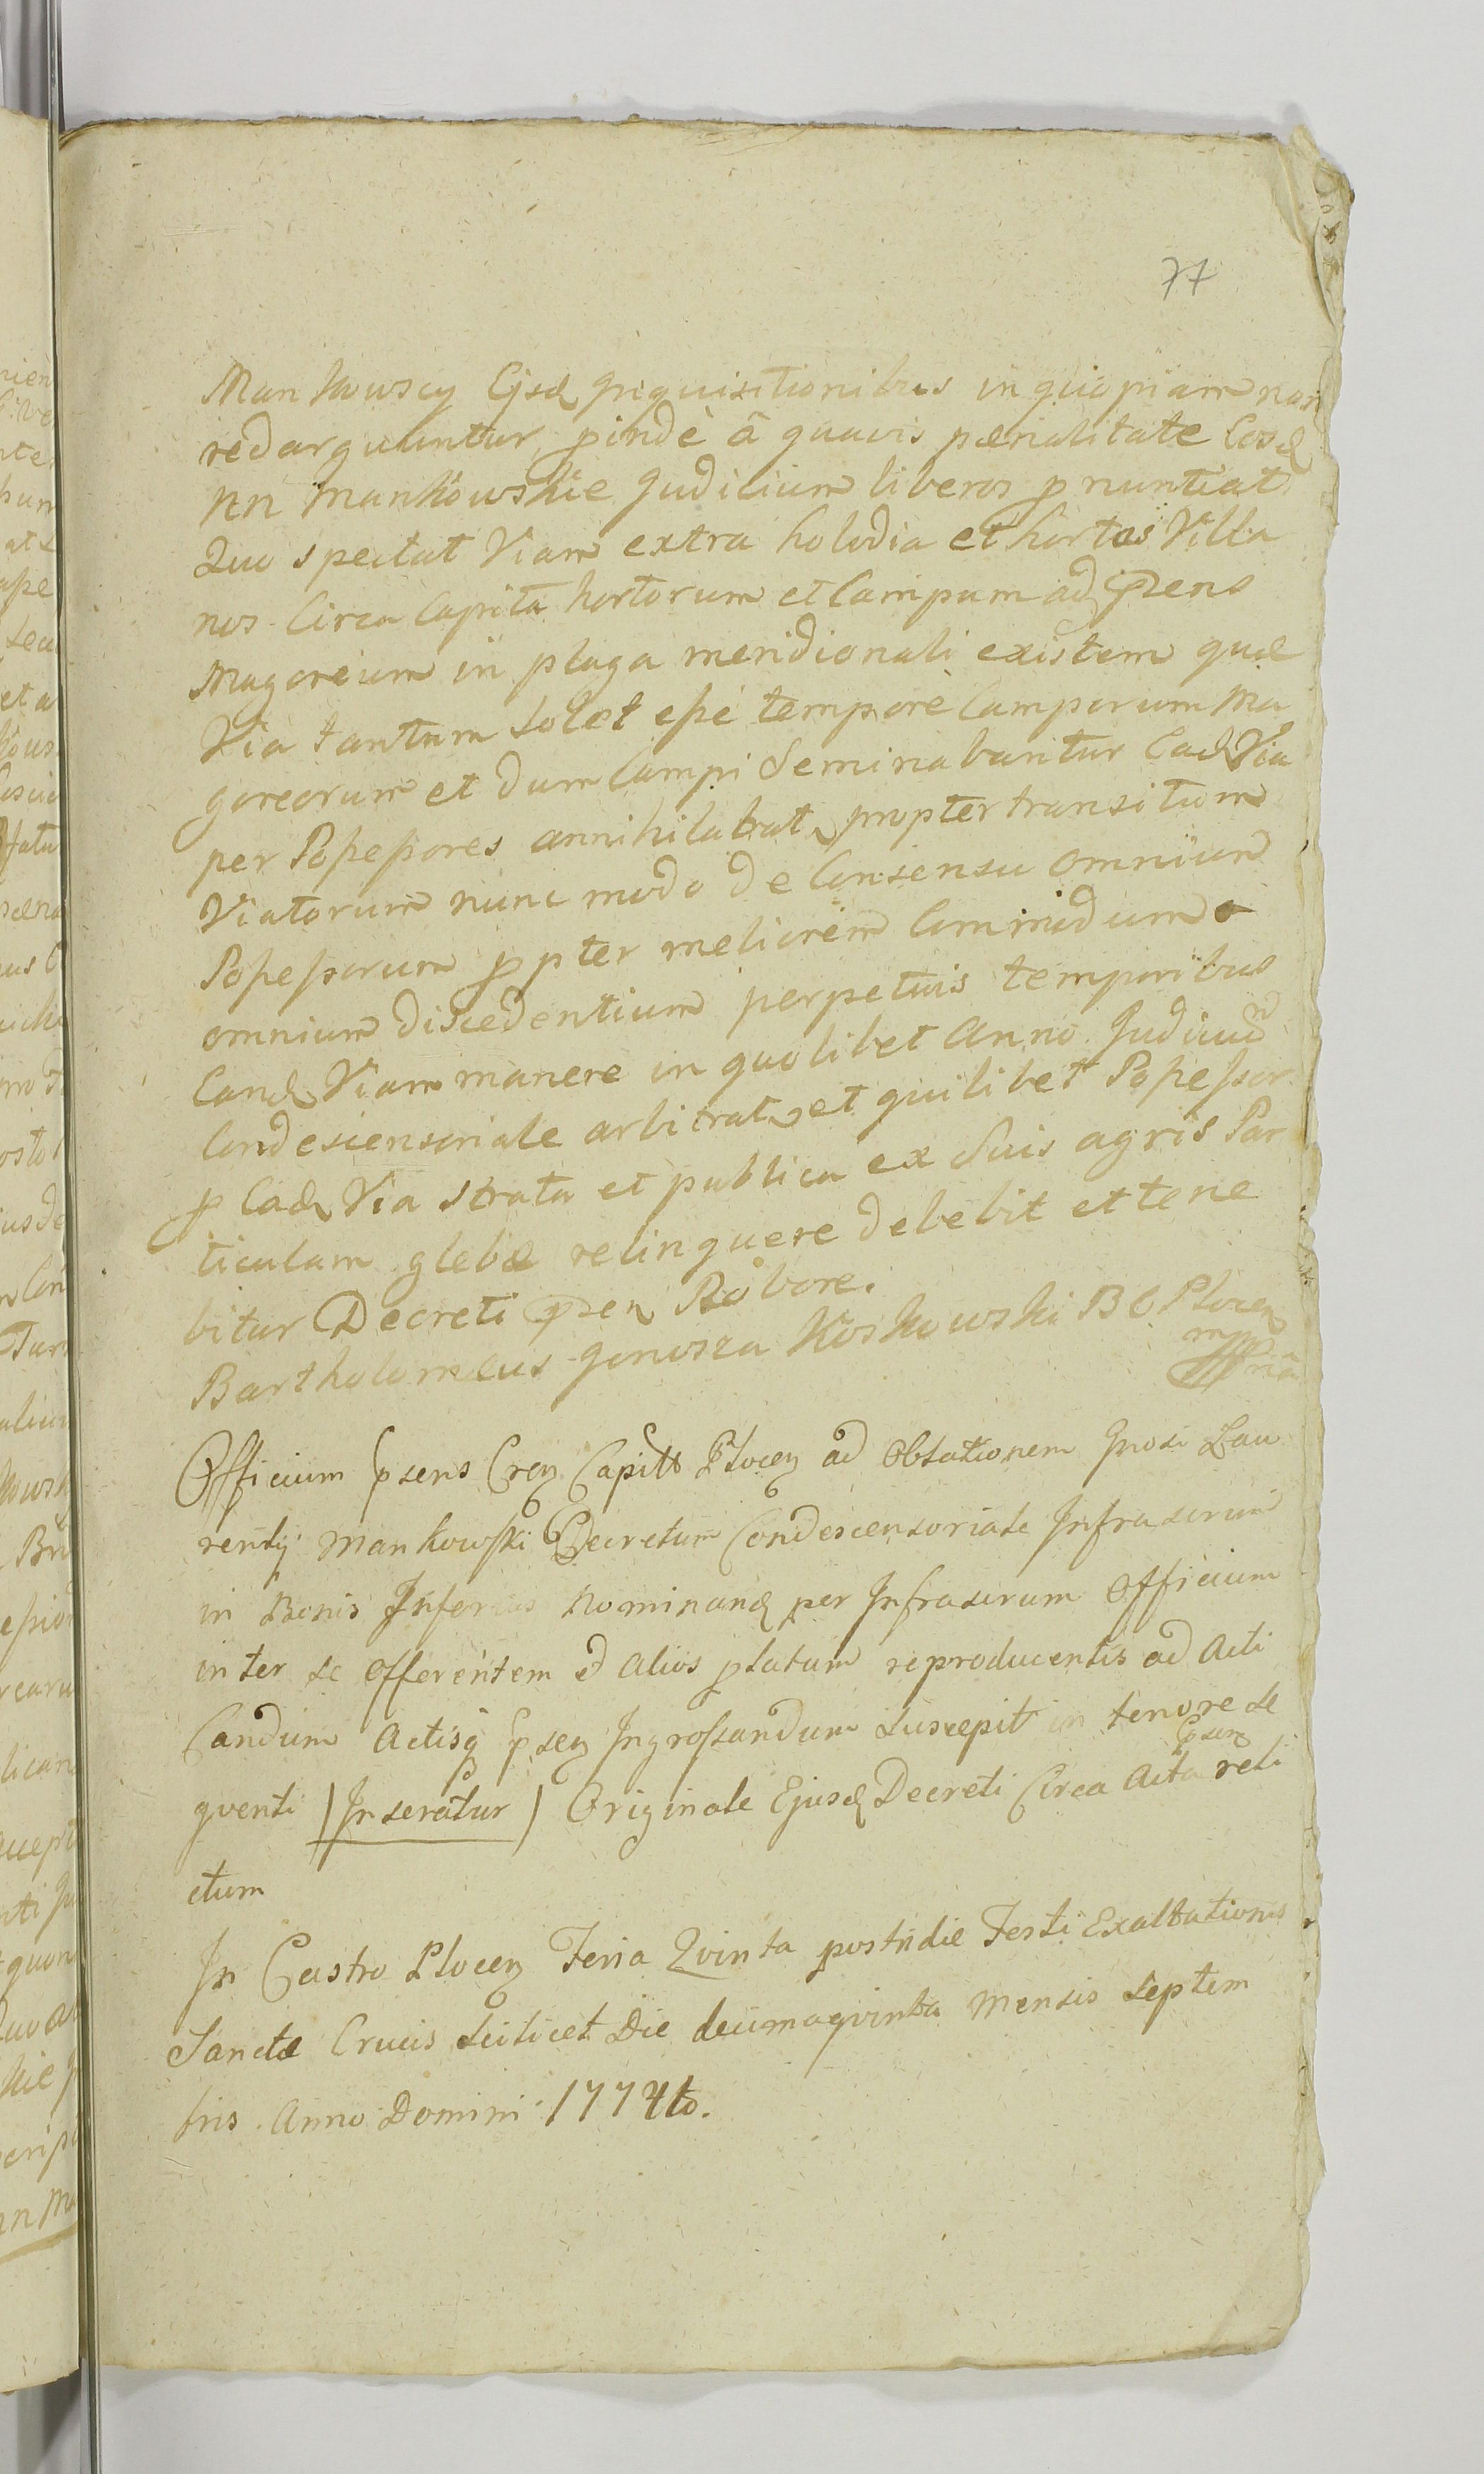 77
Mankowscy Ejsd prquisitionibus in quopiam non
redarguuntur, pindè â quavis pænalitate Eosd
NN Mankowskie Judicium liberos pnuntiat
Quo spectat Viam extra holodia et hortos Villa
nos Circa Capita hortorum et Campum ad prens
Magoreium in plaga meridionali existem quæ
Via tantum solet esse tempore Camporum Ma
goreorum et dum Campi Seminabuntur Ead Via
per Possessores annihilabat propter transitum
Viatorum nunc modo de Consensu omnium
Possessorum ppter meliorem Commodum
omnium discedentium perpetuis temporibus
Eand Viam manere in quolibet Anno Judicium
Condescensoriale arbitrat et quilibet Possessor
p Ead Via strata et publica ex Suis agris Par
ticulam glebæ relinquere debebit et tene
bitur Decreti psen Robore.
Bartholomeus Gonosza Koskowski B C Plocen
mppria
Officium psens Cren Capitt Plocen ad Oblationem Gnosi Lau
rentij Mankowski Decretum Condescensoriale Infrascrum
in Bonis Inferius Nominand per Infrascrum Officium
inter se Offerentem et Alios platum reproducentis ad Acti
Candum Actisq psen Ingrossandum suscepit in tenore se
quenti / Inseratur / Originale Ejusd Decreti Circa Acta psen reli
ctum
In Castro Plocen Feria Qvinta postridie Festi Exaltationis
Sanctæ Crucis Scilicet Die decimaqvinta Mensis Septem
bris Anno Domini 1774to.